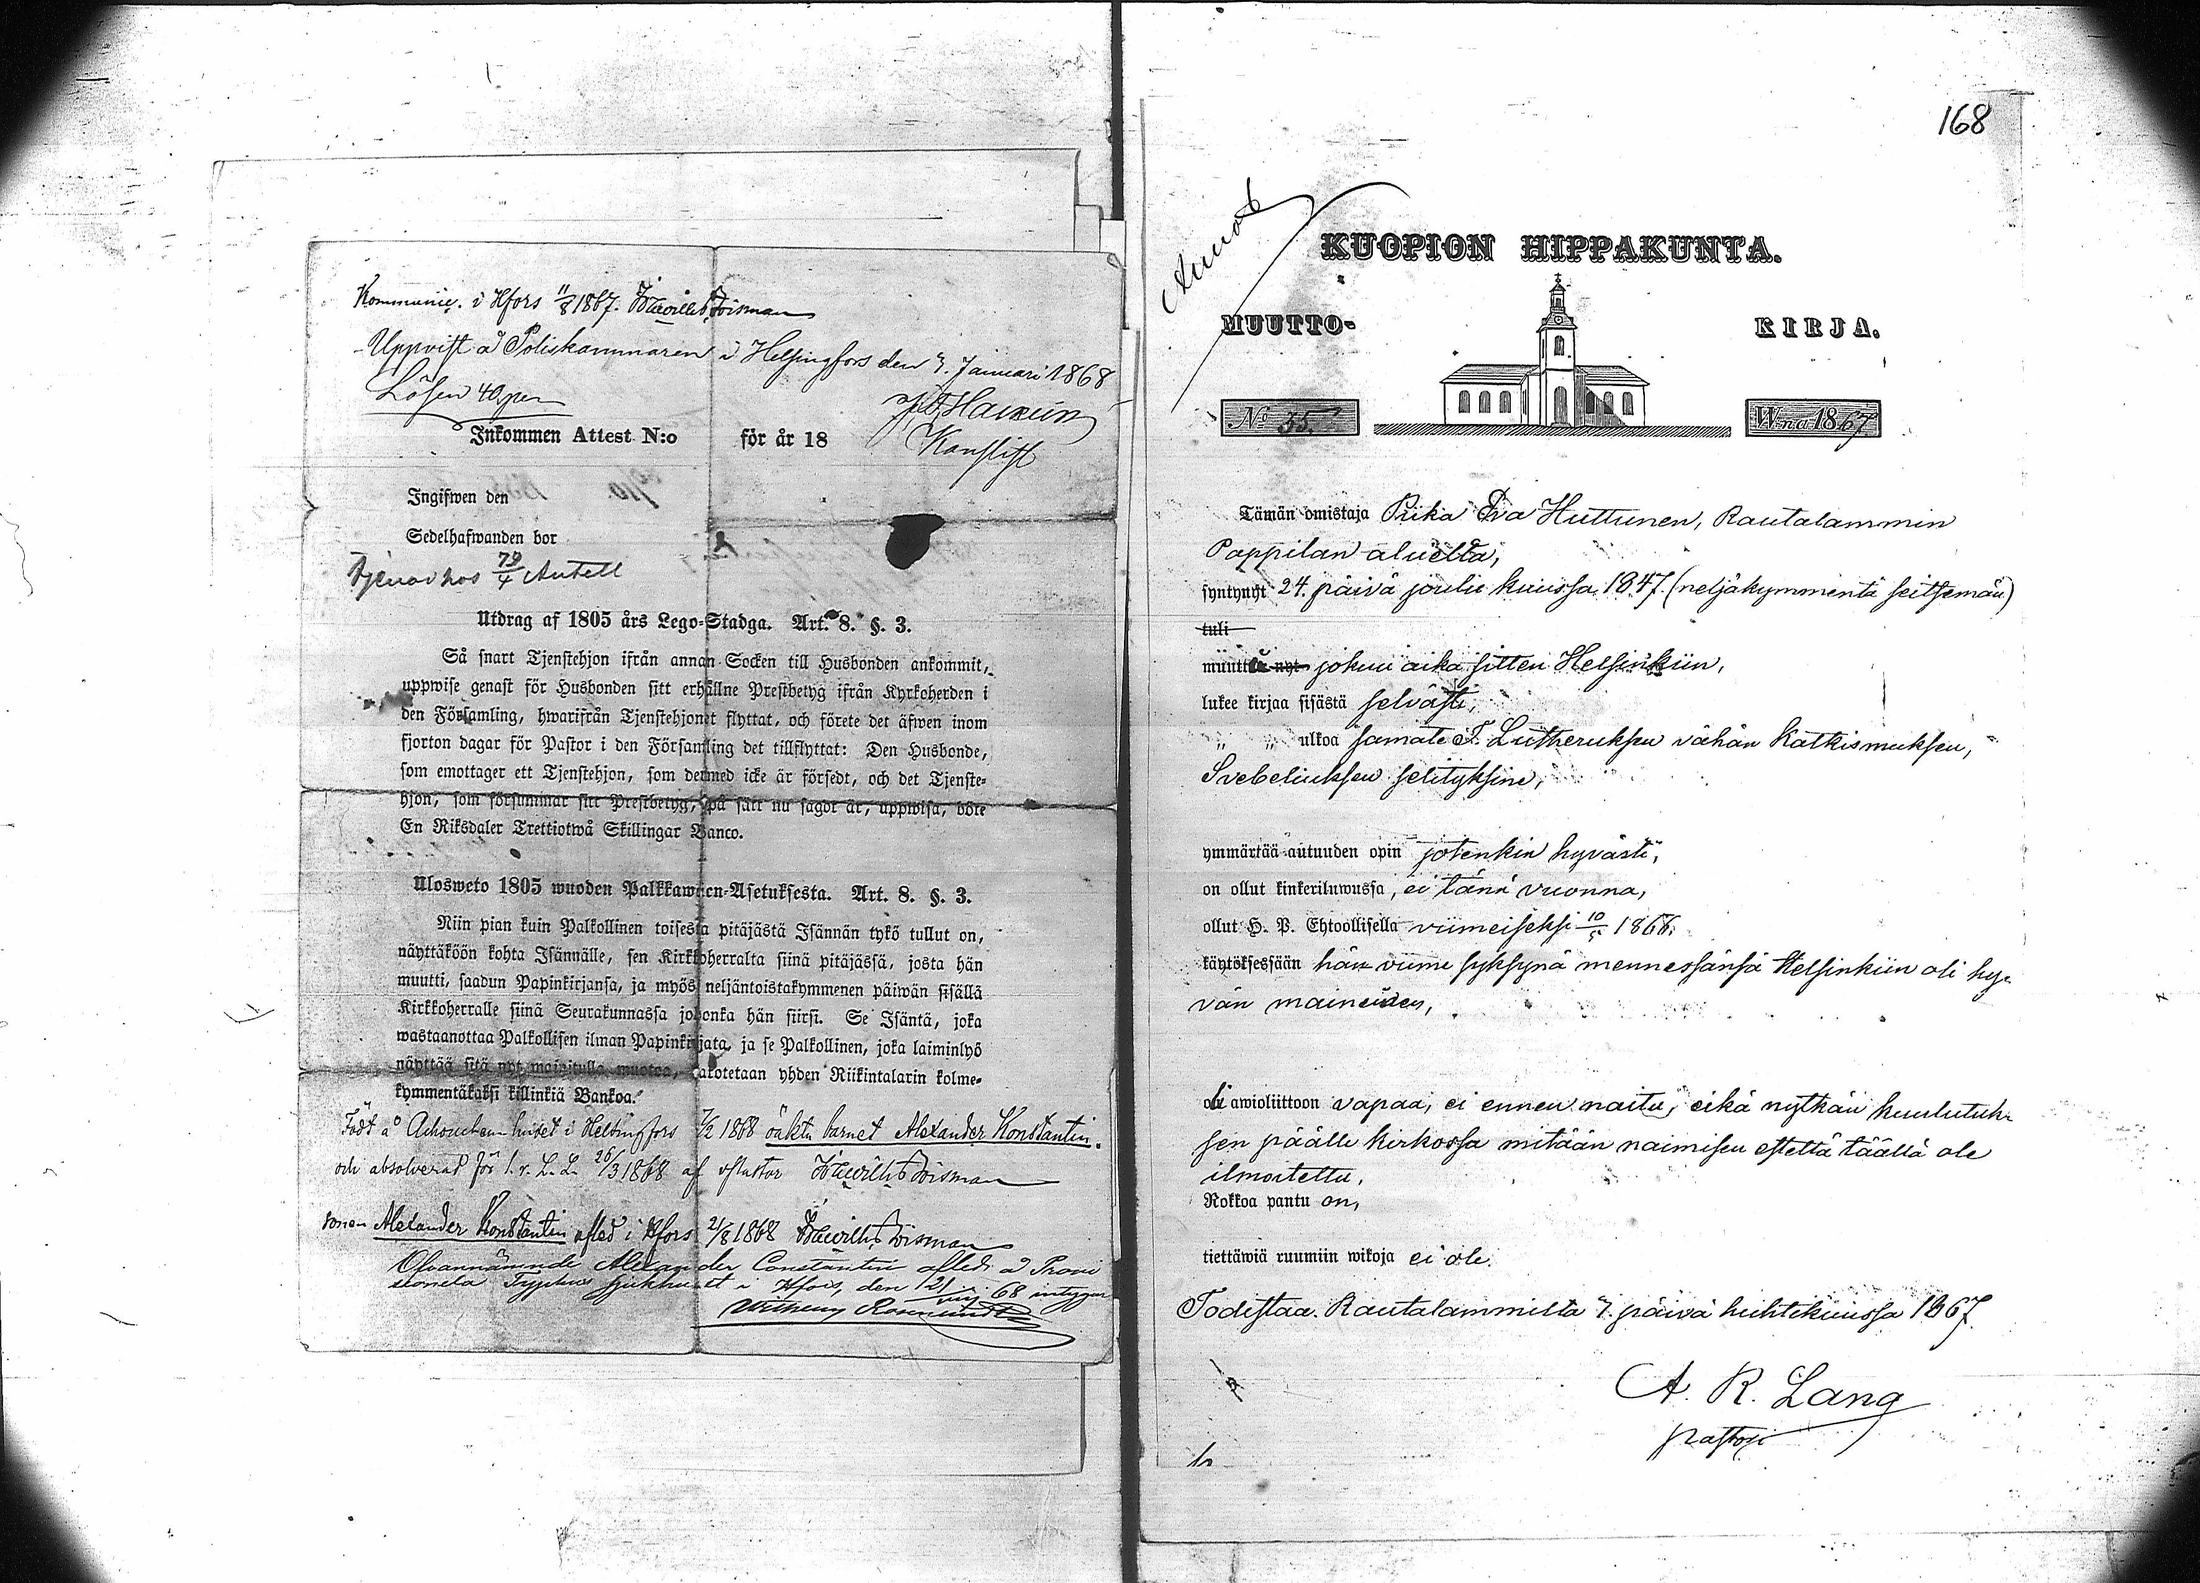 Kommunic. i Hfors 11/8 1867.
Uppvist å Poliskammaren i Helsingfors den 7. Januari 1868
Lösen 40 pen
Kanslist
Inkommen Attest N:o för år 18
Ingifwen den
Sedelhafwanden bor
Tjenar hos 79/4 Antell
Utdrag af 1805 års Lego-Stadga. Art. 8. §. 3.
Så snart Tjenstehjon ifrån annan Socken till Husbonden ankommit,
uppwise genast för Husbonden sitt erhållne Prestbetyg ifrån Kyrkoherden i
den Församling, hwarifrån Tjenstehjonet flyttat, och förete det äfwen inom
fjorton dagar för Pastor i den Församling det tillflyttat: Den Husbonde,
som emottager ett Tjenstehjon, som dermed icke är försedt, och det Tjenste-
hjon, som försummar sitt Prestbetyg, på sätt nu sagdt är, uppwisa, böte
En Riksdaler Trettiotwå Skillingar Banco.
Ulosweto 1805 wuoden Palkkawäen-Asetuksesta. Art. 8. §. 3.
Niin pian kuin Palkollinen toisesta pitäjästä Isännän tykö tullut on,
näyttäköön kohta Isännälle, sen Kirkkoherralta siinä pitäjässä, josta hän
muutti, saadun Papinkirjansa, ja myös neljäntoistakymmenen päiwän sisällä
Kirkkoherralle siinä Seurakunnassa johonka hän siirsi. Se Isäntä, joka
wastaanottaa Palkollisen ilman Papinkirjata, ja se Palkollinen, joka laiminlyö
näyttää sitä nyt mainitulla muotoa, sakotetaan yhden Riikintalarin kolme-
kymmentäkaksi killinkiä Bankoa.
Född å huset i Helsingfors 7/2 1868 oäkta barnet Alexander Konstantin.
och absolverad för l. r. L. L. 26/3 1868 af
sonen Alexander Konstantin afled i Hfors 21/8 1868
Ofvannämnde Alexander Constantin afled å Provi
sionela Typhus sjukhuset i Hfors, den 21/VIII 68 intygar
168
KUOPION HIPPAKUNTA.
MUUTTO- KIRJA.
No 35. W:na 1867
Tämän omistaja Piika Eva Huttunen, Rautalammin
Pappilan alueelta,
syntynyt 24. päivä joulu kuussa 1847. (neljäkymmentä seitsemän)
tuli
muutti nyt jokuu aika sitten Helsinkiin,
lukee kirjaa sisästä selvästi,
" " ulkoa samate T. Lutheruksen vähän Katkismuksen,
Svebeliuksen selityksine,
ymmärtää autuuden opin jotenkin hyvästi,
on ollut kinkeriluwussa, ei tänä vuonna,
ollut H. P. Ehtoollisella viimeiseksi 10/5 1866.
käytöksessään hän viime syksynä mennessänsä Helsinkiin oli hy-
vän maineiden,
oli awioliittoon vapaa, ei ennen naitu, eikä nytkään kuulutuk-
sen päälle kirkossa mitään naimisen estettä täällä ole
ilmoitettu.
Rokkoa pantu on,
tiettäwiä ruumiin wikoja ei ole.
Todistaa. Rautalammilta 7. päivä huhtikuussa 1867.
A. R. Lang
pastori